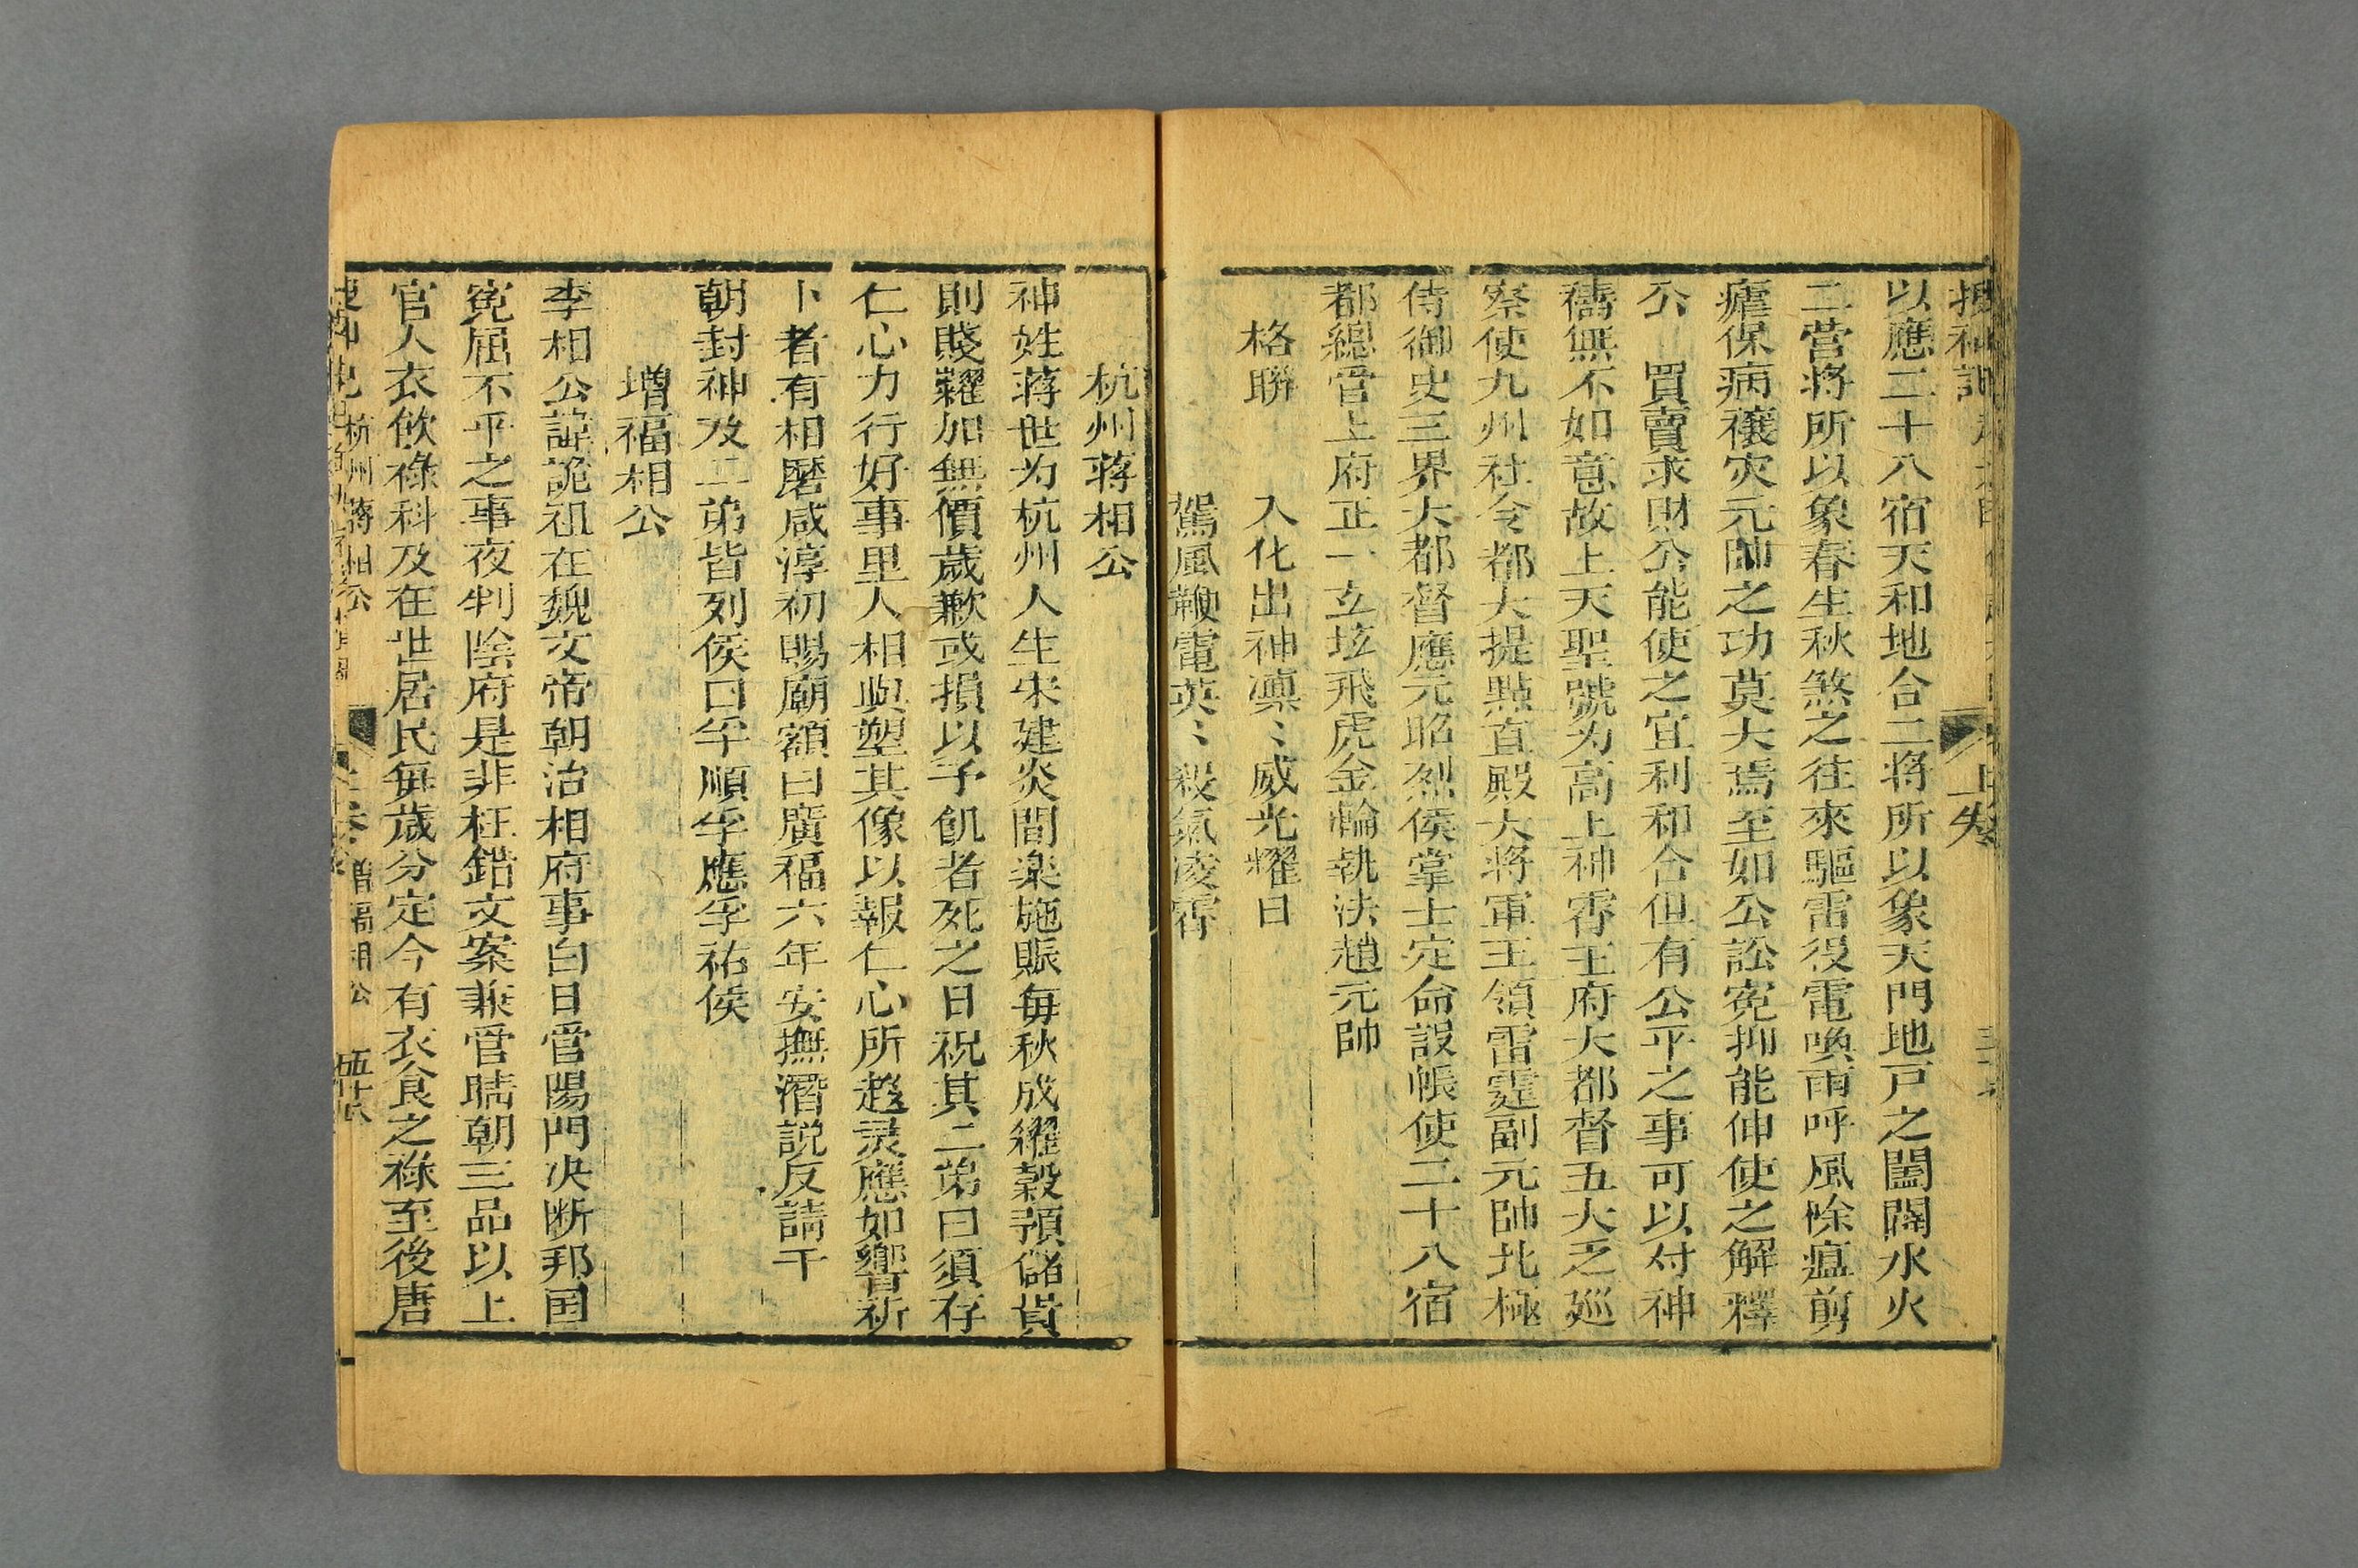 以應二十八宿天和地合二将所以象天門地戸之闔闢水火
二营将所以象春生秋煞之往來驅雷役電喚雨呼風除瘟剪
瘧保病禳灾元帥之功莫大焉至如公訟寃抑能伸使之解釋
公 買賣求財公能使之宜利和合但有公平之事可以对神
禱無不如意故上天聖號为高上神霄玉府大都督五大乏廵
察使九州社令都大提點直殿大将軍王領雷霆副元帥北極
侍御史三界大都督應元昭烈侯掌士定命設帳使二十八宿
都總管上府正一玄坛飛虎金輪執法趙元帥
格聯 入化出神凛〻威光耀日
駕風鞭電英〻殺氣凌霄
杭州蒋相公
神姓蒋世为杭州人生宋建炎間楽施賑每秋成糴穀預儲貨
則賤糶加無價歲歉或損以予飢者死之日祝其二弟曰須存
仁心力行好事里人相與塑其像以報仁心所趋灵應如響祈
卜者有相磨咸淳初賜廟額曰廣福六年安撫潛説反請于
朝封神及二弟皆列侯曰孚順孚應孚祐侯
增福相公
李相公諱詭祖在魏文帝朝治相府事白日管陽門决断邦国
寃屈不平之事夜判陰府是非枉錯文案兼管随朝三品以上
官人衣飲祿科及在世居民每歲分定今有衣食之祿至後唐
杭州蔣相公 上卷 增福相公 五十八